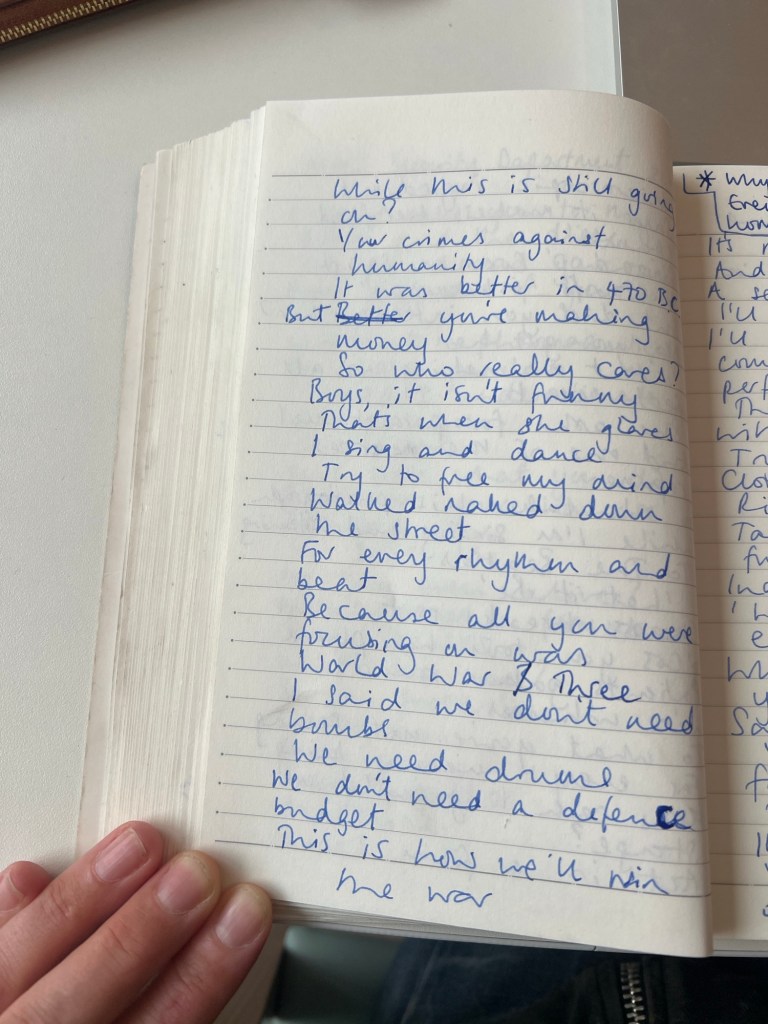 While this is still going
on?
Your crimes against
humanity
It was better in 470 BC
But Better you're making
money
So who really cares?
Boys, it isn't funny
That's when she glares
I sing and dance
Try to free my mind
Walked naked down
the street
For every rhythm and
beat
Because all you were
focusing on was
World War 3 Three
I said we don't need
bombs
We need drums
We don't need a defence
budget
This is how we'll win
the war
* Why
It's
And
A
I'll
I'll